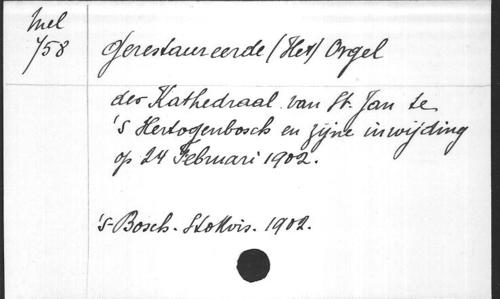 Mel
/58
Gerestaureerde (Het) Orgel
der Kathedraal van St. Jan te
's Hertogenbosch en zijne inwijding
op 24 Februari 1902.
's-Bosch. Stokvis. 1902.